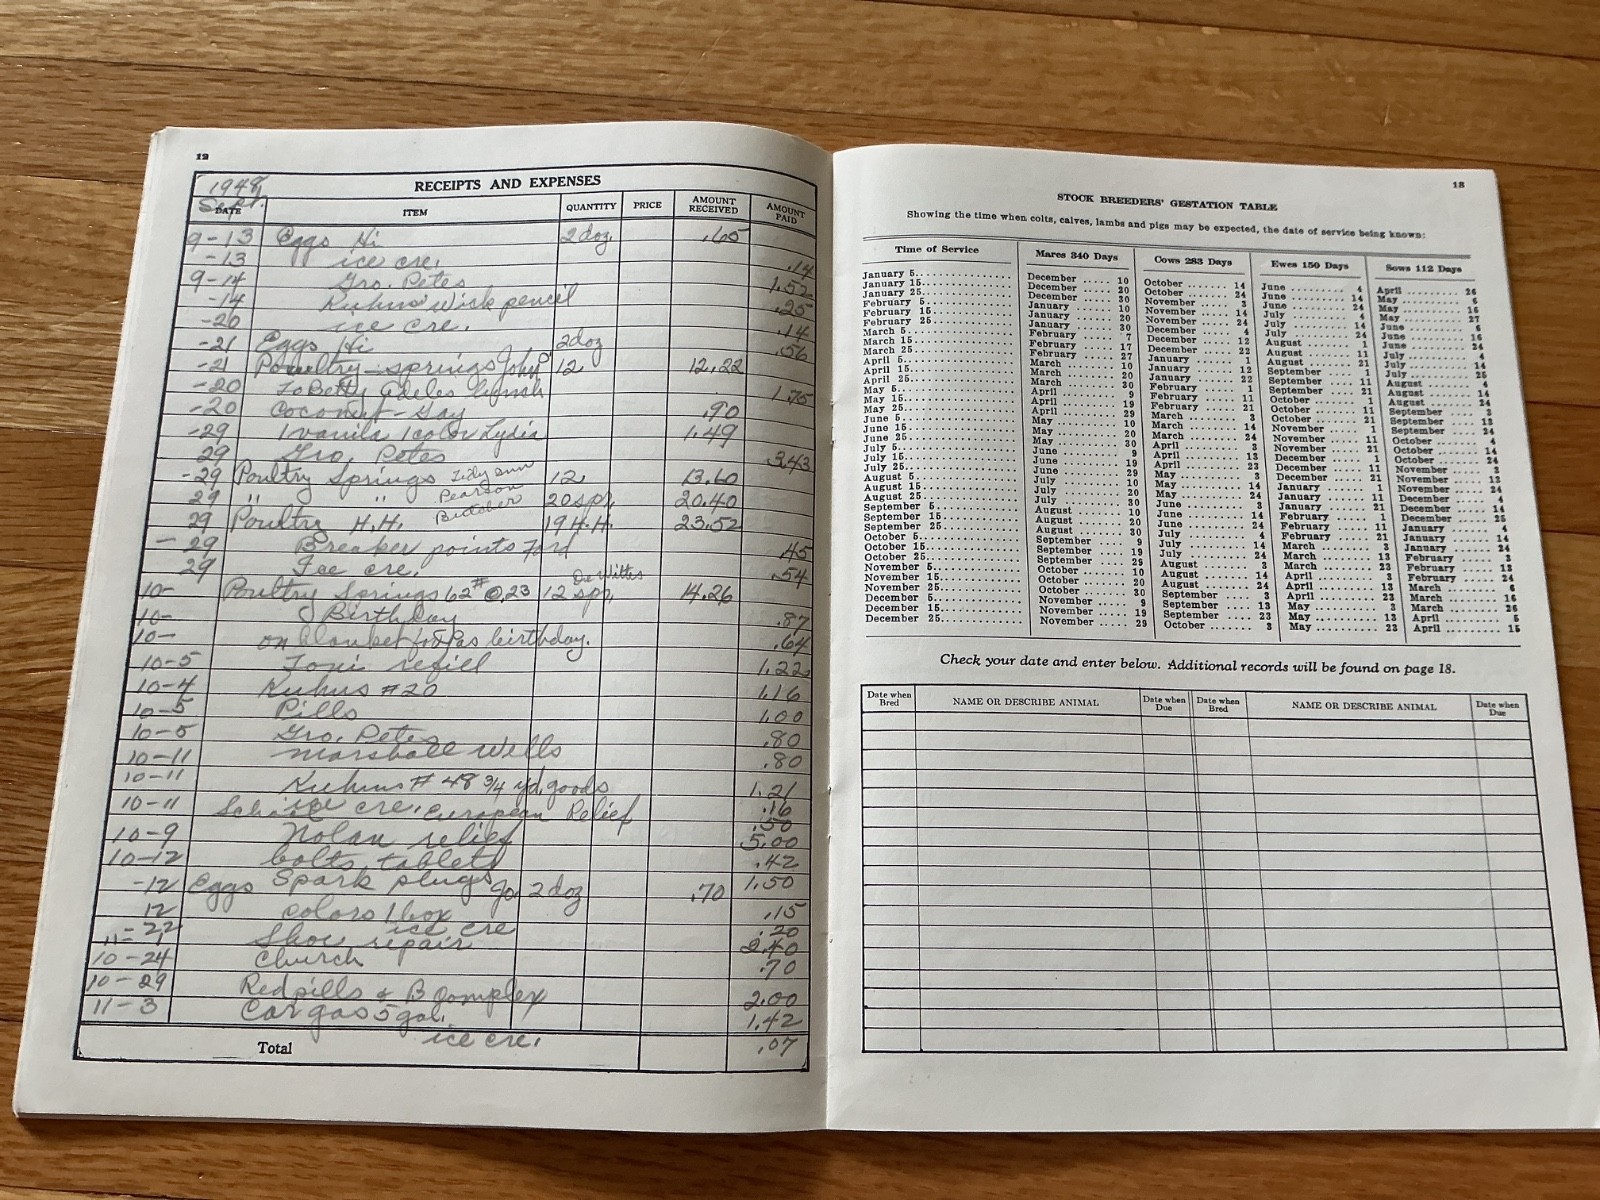 12
1948
Sept.
RECEIPTS AND EXPENSES
DATE ITEM QUANTITY PRICE AMOUNT RECEIVED AMOUNT PAID
9-13 Eggs Hi 2 doz .65
-13 ice cre. .14
9-14 Gro. Petes 1.52
-14 Kuhns wick pencil .25
-20 ice cre. .14
-21 Eggs Hi 2 doz .56
-21 Poultry-springs John P 12 12.22
-20 To Betty Adeles lunch 1.75
-20 Coconut-Gay .90
-29 1 vanila 1 color Lydia 1.49
29 Gro. Petes 3.43
-29 Poultry Springs 12 13.60
29 " " Pearson 20 spr. 20.40
29 Poultry H.H. Butcher 19 H.H. 23.52
-29 Breaker points Ford .45
29 Ice cre. .54
10- Poultry Springs 62# @.23 12 spr. De Wittes 14.26
10- Birthday .87
10- on blanket for Pas birthday. .64
10-5 Toni refill 1.22
10-4 Kuhns #20 1.16
10-5 Pills 1.00
10-5 Gro. Petes .80
10-11 Marshall Wells .80
10-11 Kuhns #48 3/4 yd. goods 1.21
ice cre. .16
10-11 European Relief .50
10-9 Nolan relief 5.00
10-12 bolts, tablets .42
Spark plugs 1.50
-12 Eggs Jo. 2 doz .70
12 colors 1 box .15
-22 ice cre .20
11-1 Shoe repair 2.40
10-24 Church .70
10-29 Red pills & B Complex 2.00
11-3 Car gas 5 gal. 1.42
ice cre. .07
Total
13
STOCK BREEDERS' GESTATION TABLE
Showing the time when colts, calves, lambs and pigs may be expected, the date of service being known:
Time of Service Mares 340 Days Cows 283 Days Ewes 150 Days Sows 112 Days
January 5 December 10 October 14 June 4 April 26
January 15 December 20 October 24 June 14 May 6
January 25 December 30 November 3 June 24 May 16
February 5 January 10 November 14 July 4 May 27
February 15 January 20 November 24 July 14 June 6
February 25 January 30 December 4 July 24 June 16
March 5 February 7 December 12 August 1 June 24
March 15 February 17 December 22 August 11 July 4
March 25 February 27 January 1 August 21 July 14
April 5 March 10 January 12 September 1 July 25
April 15 March 20 January 22 September 11 August 4
April 25 March 30 February 1 September 21 August 14
May 5 April 9 February 11 October 1 August 24
May 15 April 19 February 21 October 11 September 3
May 25 April 29 March 3 October 21 September 13
June 5 May 10 March 14 November 1 September 24
June 15 May 20 March 24 November 11 October 4
June 25 May 30 April 3 November 21 October 14
July 5 June 9 April 13 December 1 October 24
July 15 June 19 April 23 December 11 November 3
July 25 June 29 May 3 December 21 November 13
August 5 July 10 May 14 January 1 November 24
August 15 July 20 May 24 January 11 December 4
August 25 July 30 June 3 January 21 December 14
September 5 August 10 June 14 February 1 December 25
September 15 August 20 June 24 February 11 January 4
September 25 August 30 July 4 February 21 January 14
October 5 September 9 July 14 March 3 January 24
October 15 September 19 July 24 March 13 February 3
October 25 September 29 August 3 March 23 February 13
November 5 October 10 August 14 April 3 February 24
November 15 October 20 August 24 April 13 March 6
November 25 October 30 September 3 April 23 March 16
December 5 November 9 September 13 May 3 March 26
December 15 November 19 September 23 May 13 April 5
December 25 November 29 October 3 May 23 April 15
Check your date and enter below. Additional records will be found on page 18.
Date when Bred NAME OR DESCRIBE ANIMAL Date when Due Date when Bred NAME OR DESCRIBE ANIMAL Date when Due